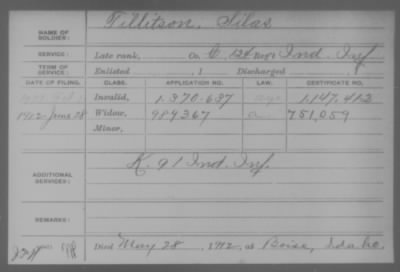 NAME OF SOLDIER: Tillitson, Silas
SERVICE: Late rank, Co. C, 124 Reg't Ind. Inf
TERM OF SERVICE: Enlisted , 1 Discharged
DATE OF FILING. CLASS. APPLICATION NO. LAW. CERTIFICATE NO.
Invalid, 1.370.637 1.147.413
1912 June 28 Widow, 989367 a 751,059
Minor,
K. 91 Ind. Inf.
ADDITIONAL SERVICES:
REMARKS:
Died May 28, 1912, at Boise, Idaho.